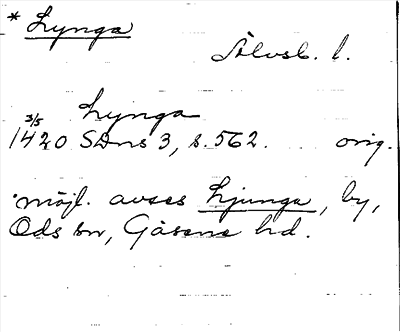 * Lynga
Sölvsb. l.
Lynga
3/5
1420 SDns 3, s. 562. orig.
möjl. avses Ljunga, by,
Ods sn, Gäsene hd.